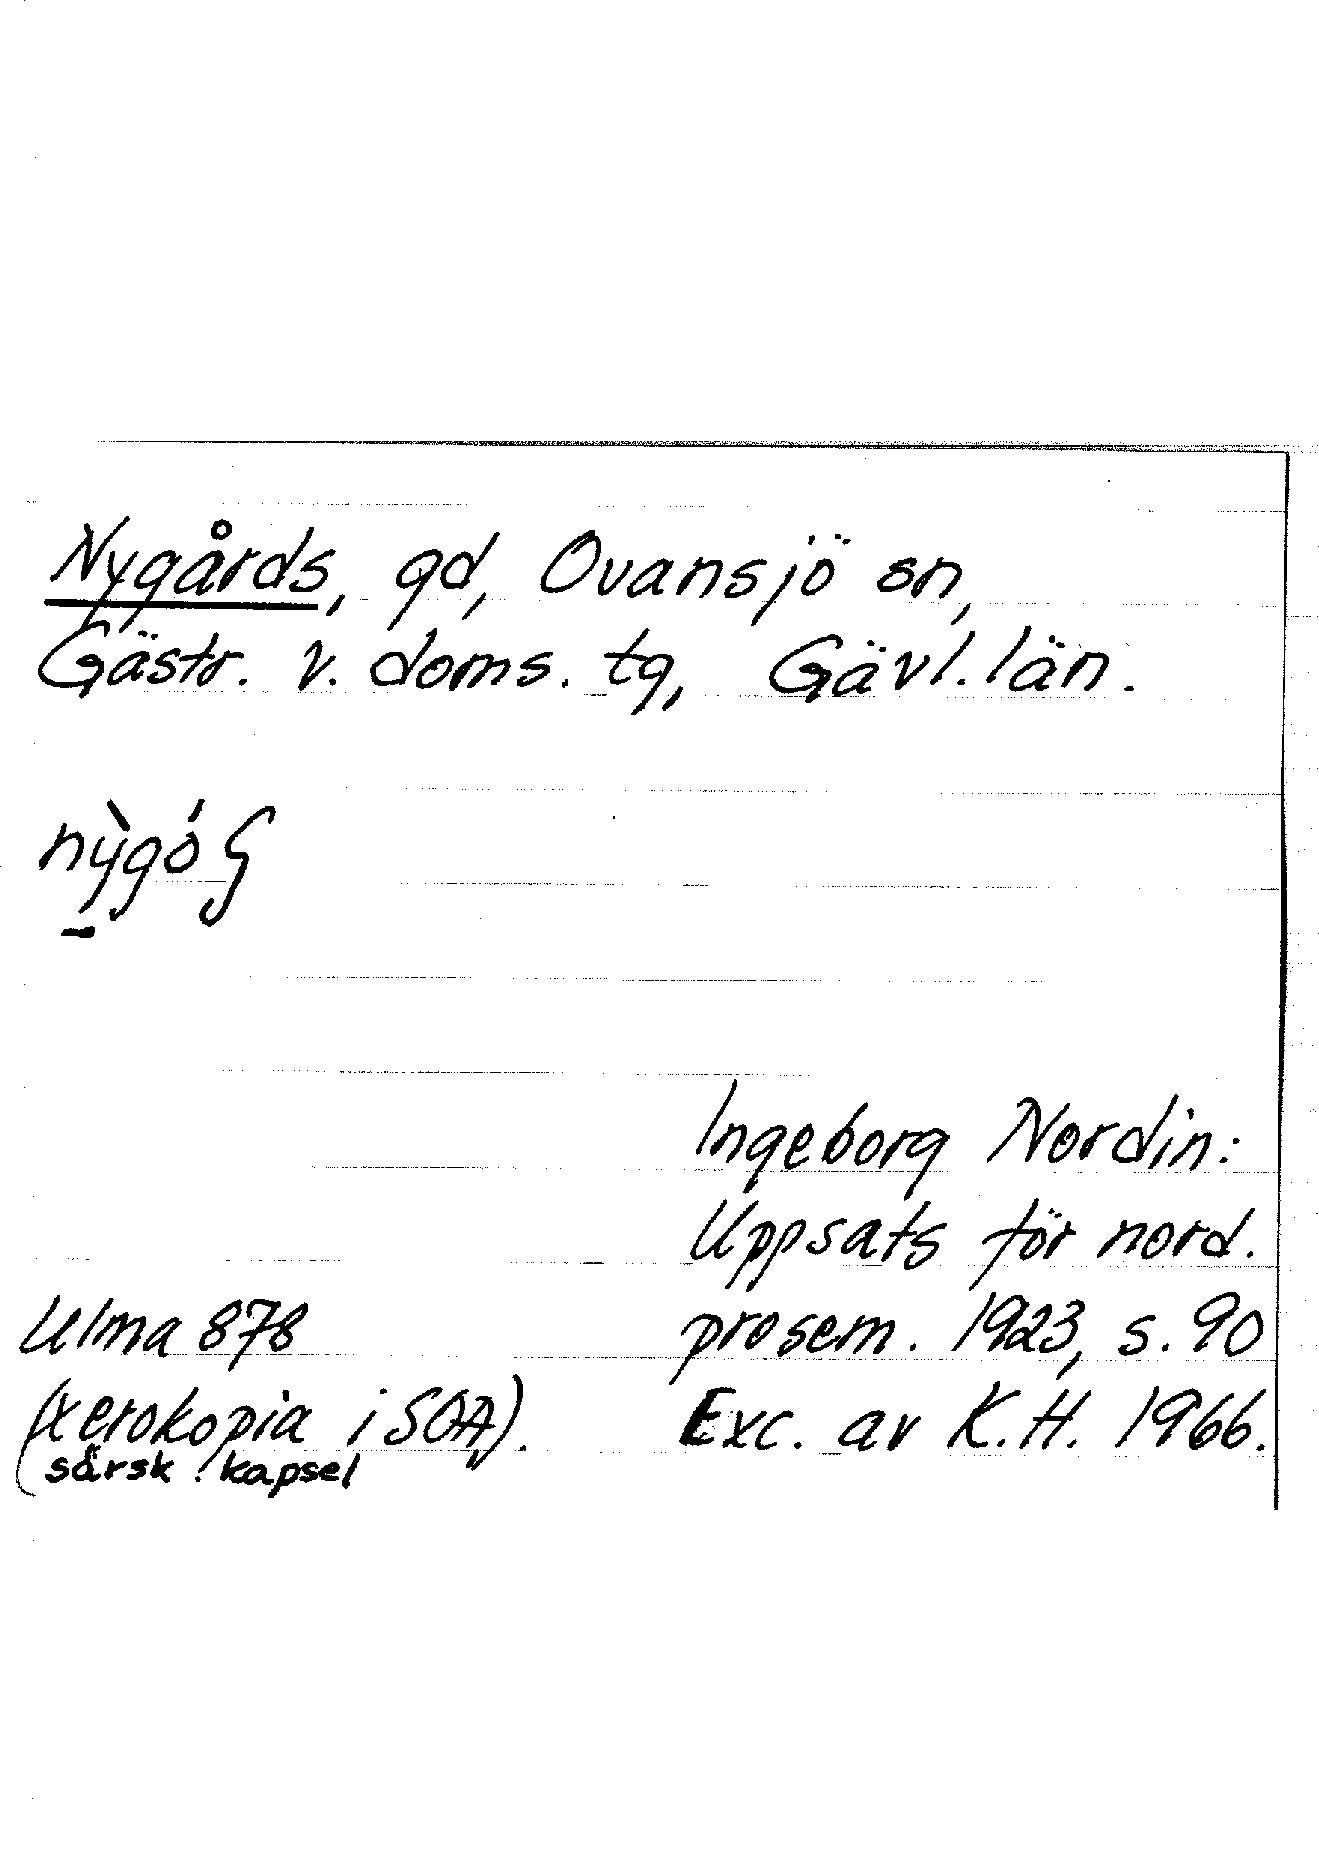 Nygårds, gd, Ovansjö sn,
Gästr. v. doms. tg, Gävl. län.
Ingeborg Nordin:
Uppsats för nord.
prosem. 1923, s. 90
Exc. av K.H. 1966.
Ulma 878
(xerokopia i SOA).
särsk. kapsel